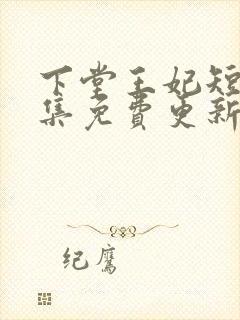 下堂王妃短
集免费更新
纪鹰